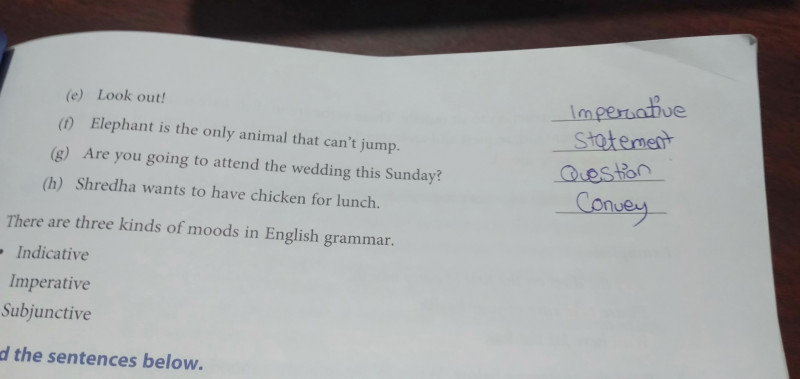 (e) Look out! Imperative
(f) Elephant is the only animal that can't jump. Statement
(g) Are you going to attend the wedding this Sunday? Question
(h) Shredha wants to have chicken for lunch. Convey
There are three kinds of moods in English grammar.
• Indicative
Imperative
Subjunctive
d the sentences below.